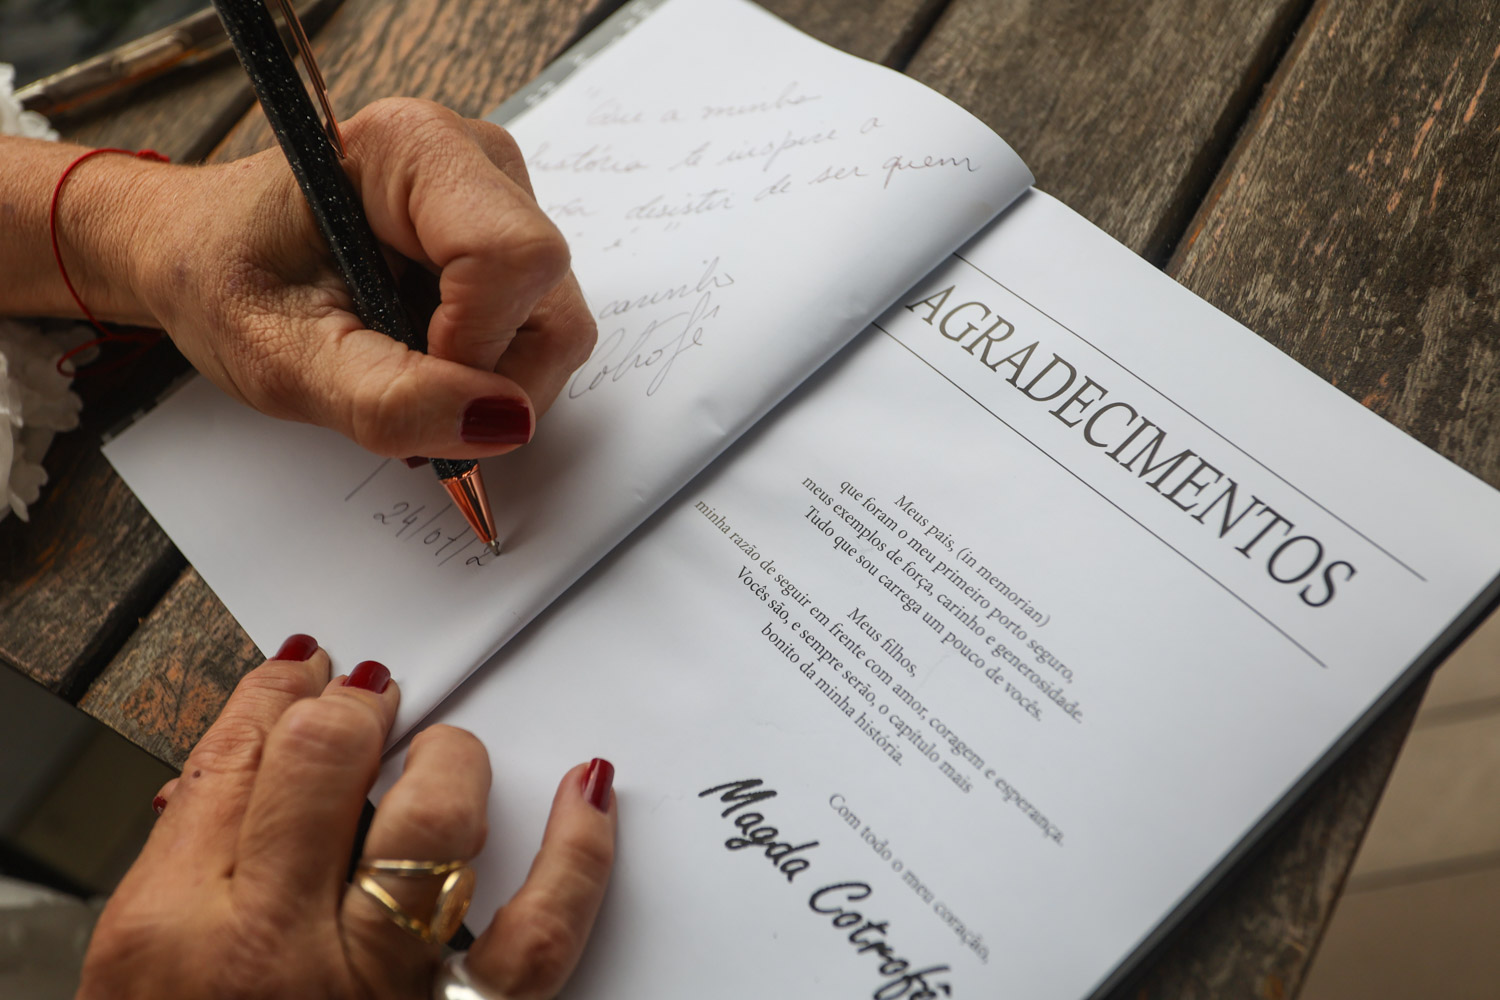 "Que a minha
história te inspire a
desistir de ser quem
é"
carinho
Cotrofe
24/01/2
AGRADECIMENTOS
Meus pais, (in memorian)
que foram o meu primeiro porto seguro,
meus exemplos de força, carinho e generosidade.
Tudo que sou carrega um pouco de vocês.
Meus filhos,
minha razão de seguir em frente com amor, coragem e esperança.
Vocês são, e sempre serão, o capítulo mais
bonito da minha história.
Com todo o meu coração,
Magda Cotrofê